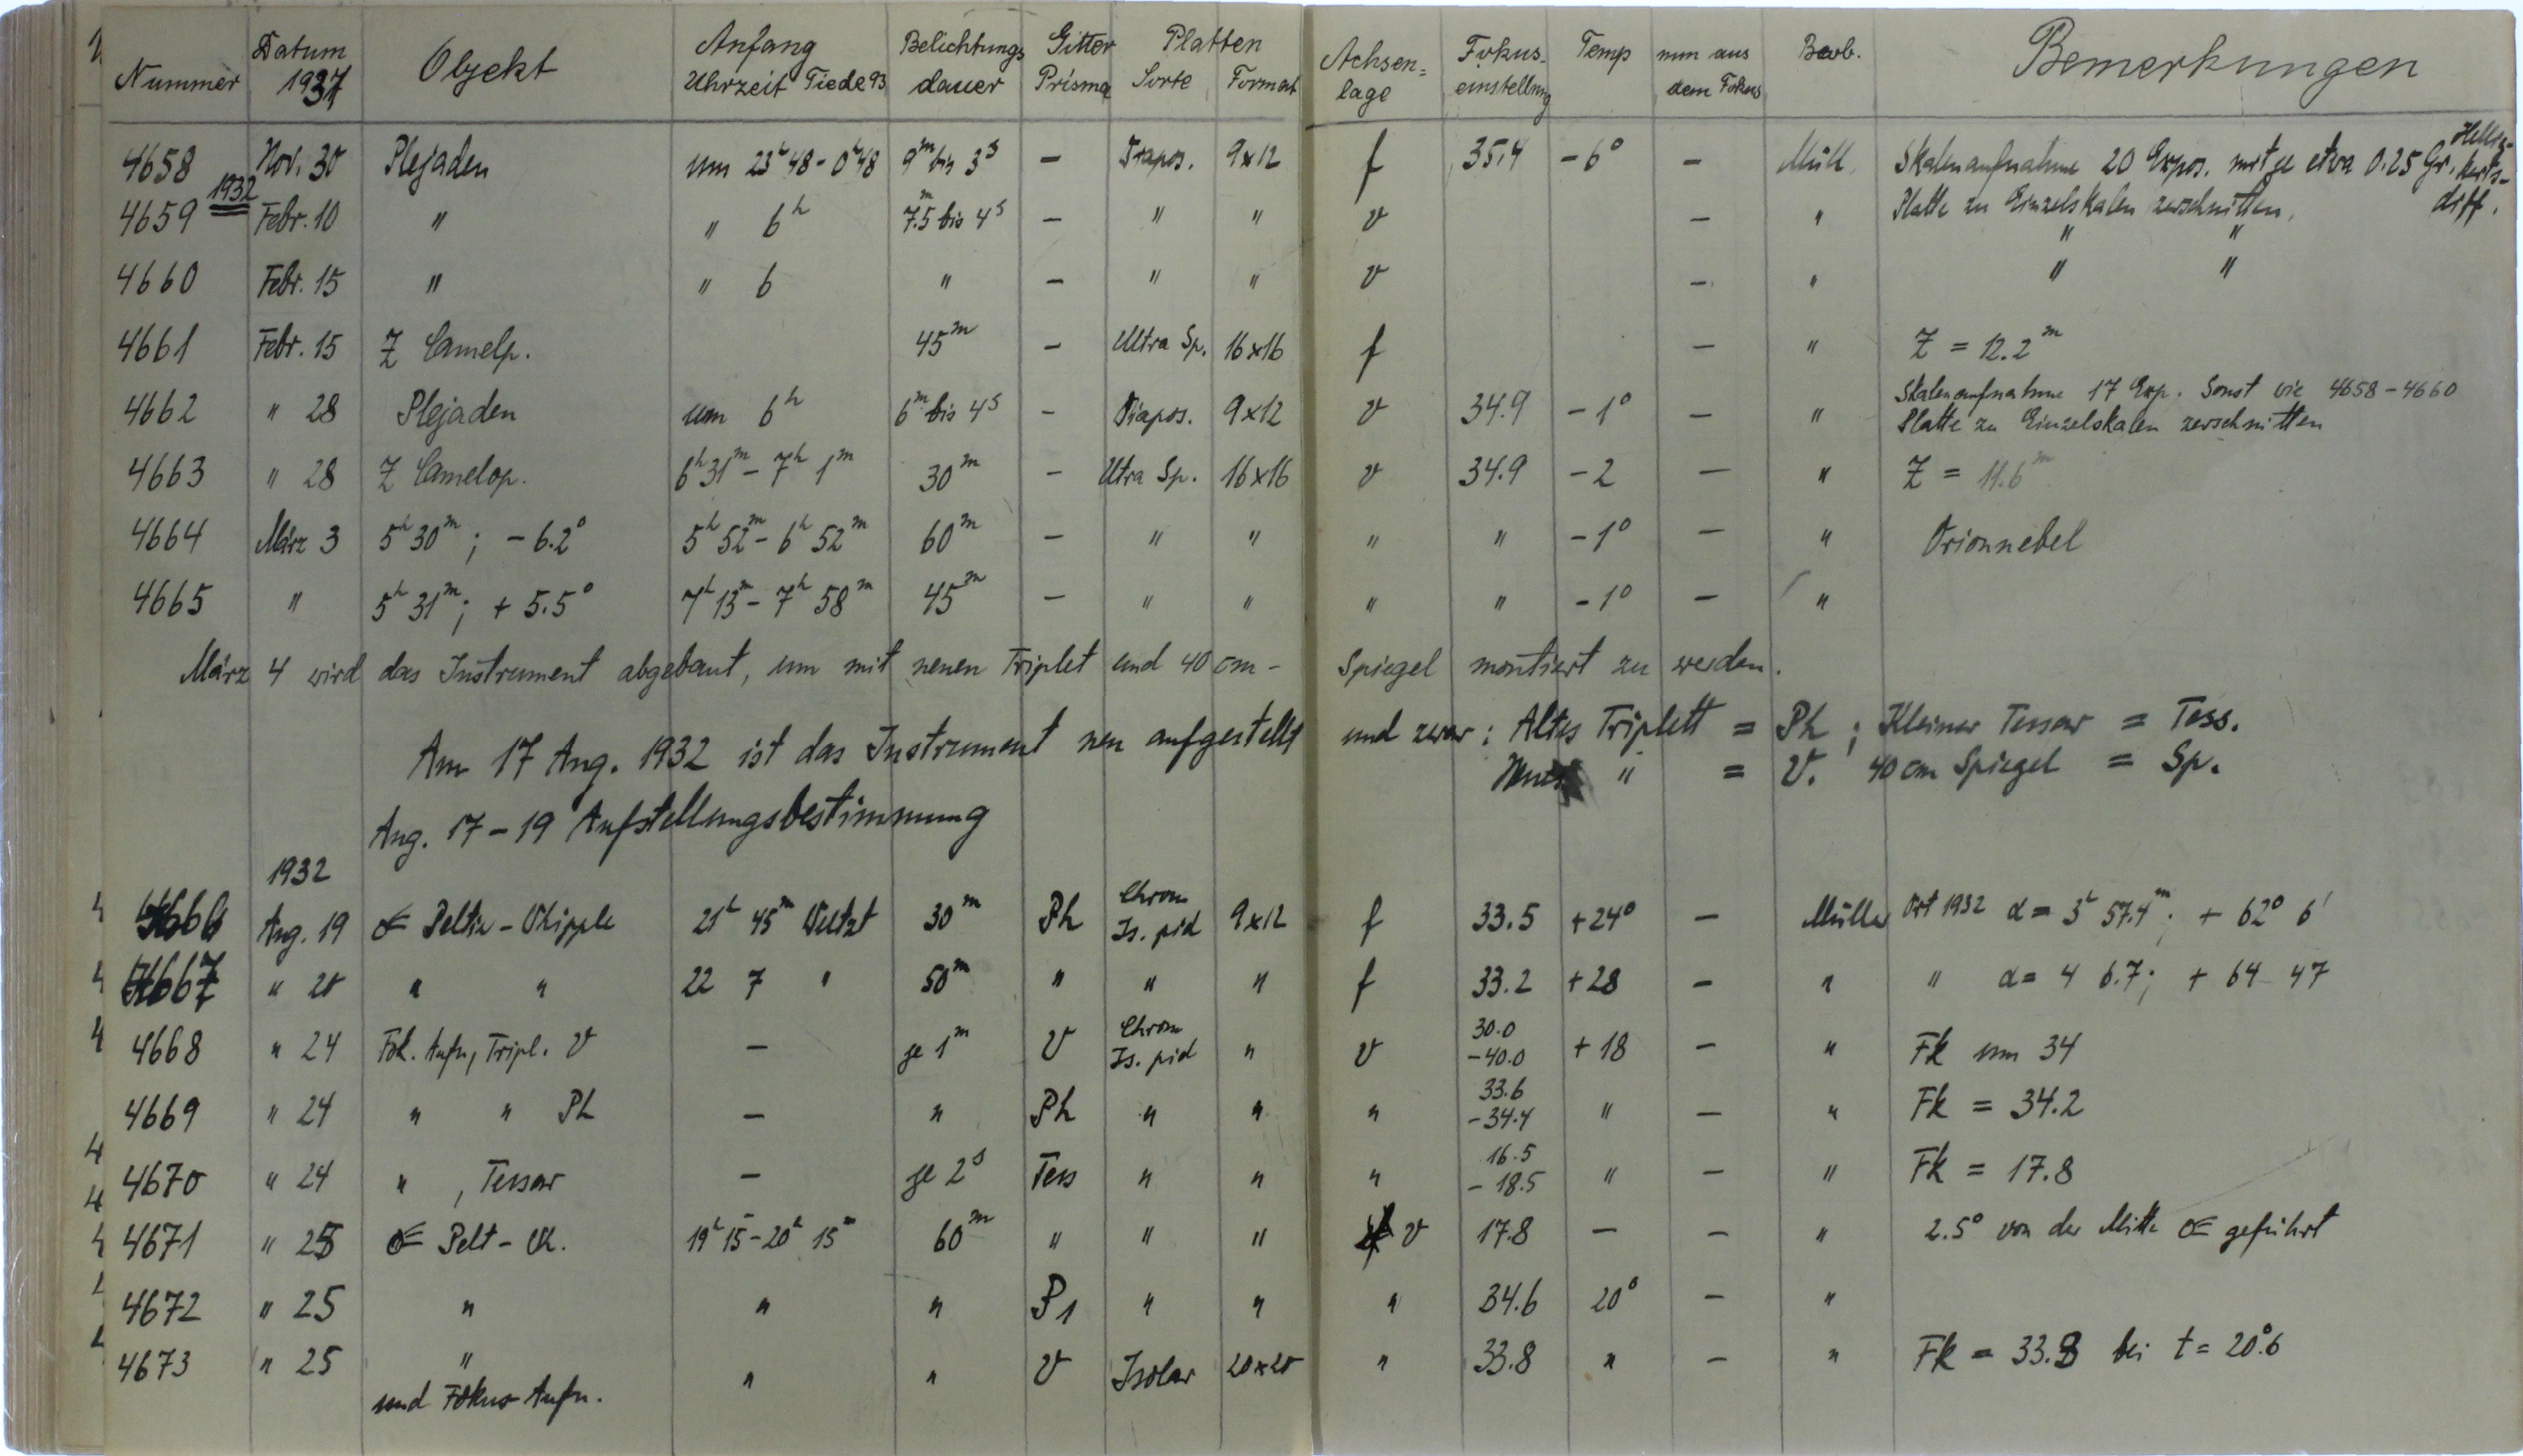 Nummer Datum 1931 Objekt Anfang Uhrzeit Tiede 93 Belichtungs dauer Gitter Prisma Platten Sorte Format Achsen= lage Fokus- einstellung Temp mm aus dem Fokus Beob. Bemerkungen
4658 Nov. 30 Plejaden um 23h48 - 0h48 9m bis 3s - Diapos. 9x12 f 35.4 -6° - Müll. Skalenaufnahme 20 Expos. mit je etwa 0.25 Gr. Hellig- keits- diff.
Platte zu Einzelskalen zerschnitten.
1932
4659 Febr. 10 " " 6h 7.5m bis 4s - " " v - " " "
4660 Febr. 15 " " 6 " - " " v - " " "
4661 Febr. 15 Z Camelp. 45m - Ultra Sp. 16x16 f - " Z = 12.2m
4662 " 28 Plejaden um 6h 6m bis 4s - Diapos. 9x12 v 34.9 -1° - " Skalenaufnahme 17 Exp. Sonst wie 4658-4660
Platte zu Einzelskalen zerschnitten
4663 " 28 Z Camelop. 6h31m - 7h 1m 30m - Utra Sp. 16x16 v 34.9 -2 - " Z = 11.6m
4664 März 3 5h30m ; -6.2° 5h52m - 6h52m 60m - " " " " -1° - " Orionnebel
4665 " 5h31m ; +5.5° 7h13m - 7h58m 45m - " " " " -1° - "
März 4 wird das Instrument abgebaut, um mit neuen Triplet und 40 cm - Spiegel montiert zu werden.
Am 17 Aug. 1932 ist das Instrument neu aufgestellt und zwar : Altes Triplett = Ph ; Kleiner Tessar = Tess.
Neues " = V. 40 cm Spiegel = Sp.
Aug. 17-19 Aufstellungsbestimmung
1932
4666 Aug. 19 ☄ Peltier - Whipple 21h 45m Weltzt 30m Ph Chrom Is. pid 9x12 f 33.5 +24° - Müller Ort 1932 α = 3h 57.4m ; + 62° 6'
4667 " 20 " " 22 7 " 50m " " " f 33.2 +28 - " " α = 4 6.7 ; + 64 47
4668 " 24 Fok. Aufn, Tripl. V - je 1m V Chrom Is. pid " v 30.0 -40.0 +18 - " Fk um 34
4669 " 24 " " Ph - " Ph " " " 33.6 -34.4 " - " Fk = 34.2
4670 " 24 " , Tessar - je 2s Tess " " " 16.5 -18.5 " - " Fk = 17.8
4671 " 25 ☄ Pelt - Wh. 19h15m - 20h15m 60m " " " v 17.8 - - " 2.5° von der Mitte ☄ geführt
4672 " 25 " " " P1 " " " 34.6 20° - "
4673 " 25 " " " V Isolar 20x20 " 33.8 " - " Fk = 33.8 bei t = 20°.6
und Fokus-Aufn.